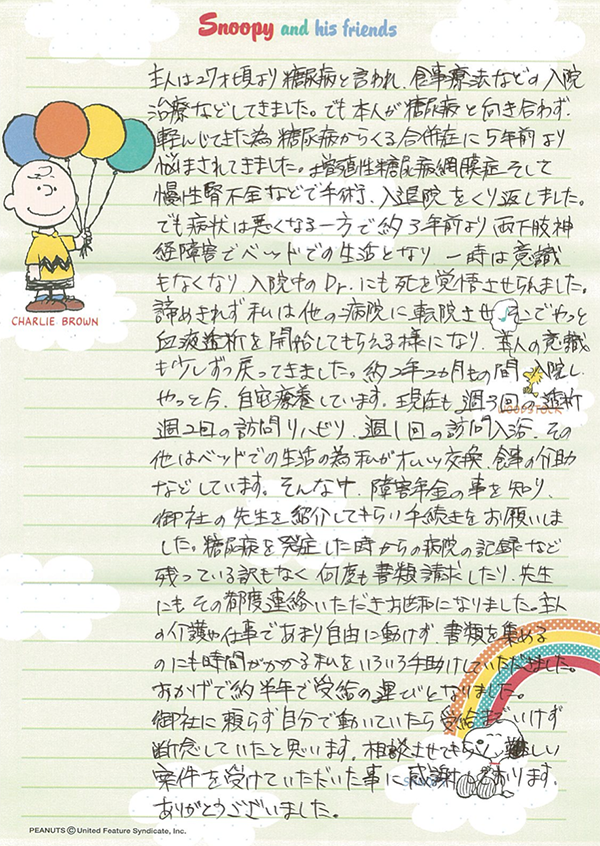 Snoopy and his friends
主人は27才頃より糖尿病と言われ、食事療法などの入院
治療などしてきました。でも本人が糖尿病と向き合わず、
軽んじてきた為糖尿病からくる合併症に5年前より
悩まされてきました。増殖性糖尿病網膜症そして
慢性腎不全などで手術、入退院をくり返しました。
でも病状は悪くなる一方で約3年前より両下肢神
経障害でベッドでの生活となり、一時は意識
もなくなり、入院中のDr.にも死を覚悟させられました。
諦めきれず私は他の病院に転院させ、そこでやっと
血液透析を開始してもらえる様になり、主人の意識
も少しずつ戻ってきました。約2年2カ月もの間入院し
やっと今、自宅療養しています。現在も週3回の透析
週2回の訪問リハビリ、週1回の訪問入浴、その
他はベッドでの生活の為私がオムツ交換、食事の介助
などしています。そんな中、障害年金の事を知り、
御社の先生を紹介してもらい手続きをお願いしま
した。糖尿病を発症した時からの病院の記録など
残っている訳もなく何度も書類請求したり、先生
にもその都度連絡いただきお世話になりました。主人
の介護や仕事であまり自由に動けず、書類を集める
のにも時間がかかる私をいろいろ手助けしていただきました。
おかげで約半年で受給の運びとなりました。
御社に頼らず自分で動いていたら受給までいけず
断念していたと思います。相談させてもらい、難しい
案件を受けていただいた事に感謝しております。
ありがとうございました。
CHARLIE BROWN
WOODSTOCK
PEANUTS © United Feature Syndicate, Inc.